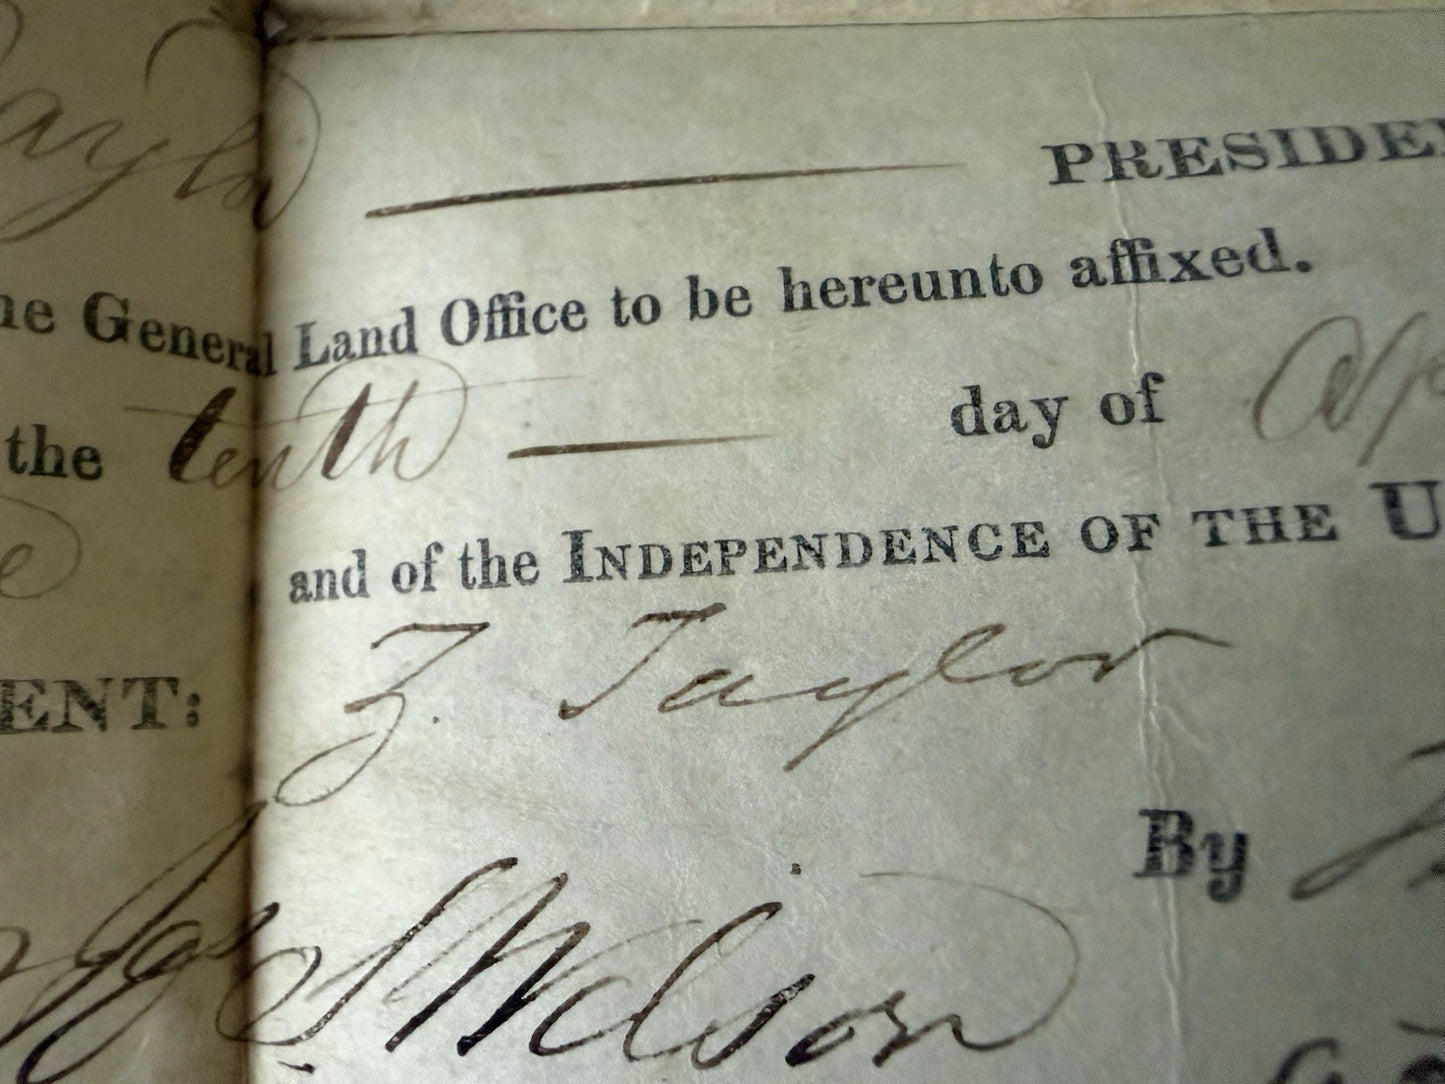 Taylor PRESIDEN
he General Land Office to be hereunto affixed.
the tenth day of Ap
and of the INDEPENDENCE OF THE U
ENT: Z. Taylor
By